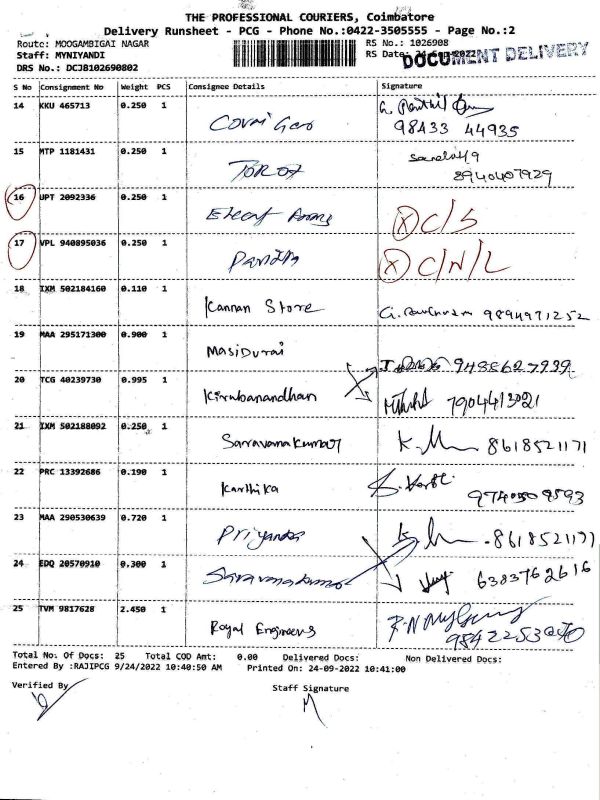 THE PROFESSIONAL COURIERS, Coimbatore
Delivery Runsheet - PCG - Phone No.:0422-3505555 - Page No.:2
Route: MOOGAMBIGAI NAGAR RS No.: 1026908
Staff: MYNIYANDI RS Date: 24-Sep-2022 DOCUMENT DELIVERY
DRS No.: DCJ8102690802
S No Consignment No Weight PCS Consignee Details Signature
14 KKU 465713 0.250 1
98433 44935
15 MTP 1181431 0.250 1
8940407929
16 UPT 2092336 0.250 1 X C/S
17 VPL 940895036 0.250 1 X C/N/L
18 IXM 502184160 0.110 1
Kannan Store 9894971252
19 MAA 295171300 0.900 1
Masidurai 9488627939
20 TCG 40239730 0.995 1
Kirubanandhan 7904413021
21 IXM 502188092 0.250 1
Saravanakumar 8618521171
22 PRC 13392686 0.190 1
Karthika
23 MAA 290530639 0.720 1
Priyanka 8618521171
24 EDQ 20570910 0.300 1
Saravanakumar 6383762616
25 TVM 9817628 2.450 1
Royal Engineers
Total No. Of Docs: 25 Total COD Amt: 0.00 Delivered Docs: Non Delivered Docs:
Entered By :RAJIPCG 9/24/2022 10:40:50 AM Printed On: 24-09-2022 10:41:00
Verified By Staff Signature